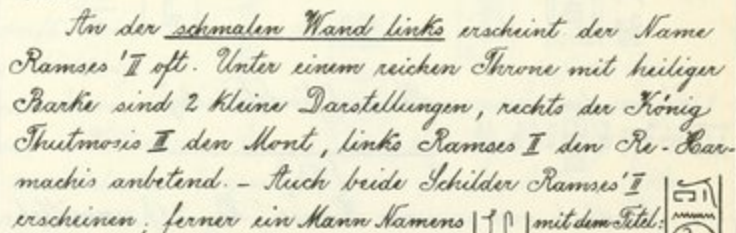 An der schmalen Wand links erscheint der Name
Ramses' II oft. Unter einem reichen Throne mit heiliger
Barke sind 2 kleine Darstellungen, rechts der König
Thutmosis III den Mont, links Ramses II den Re-Har-
machis anbetend. – Auch beide Schilder Ramses' II
erscheinen, ferner ein Mann Namens mit dem Titel: